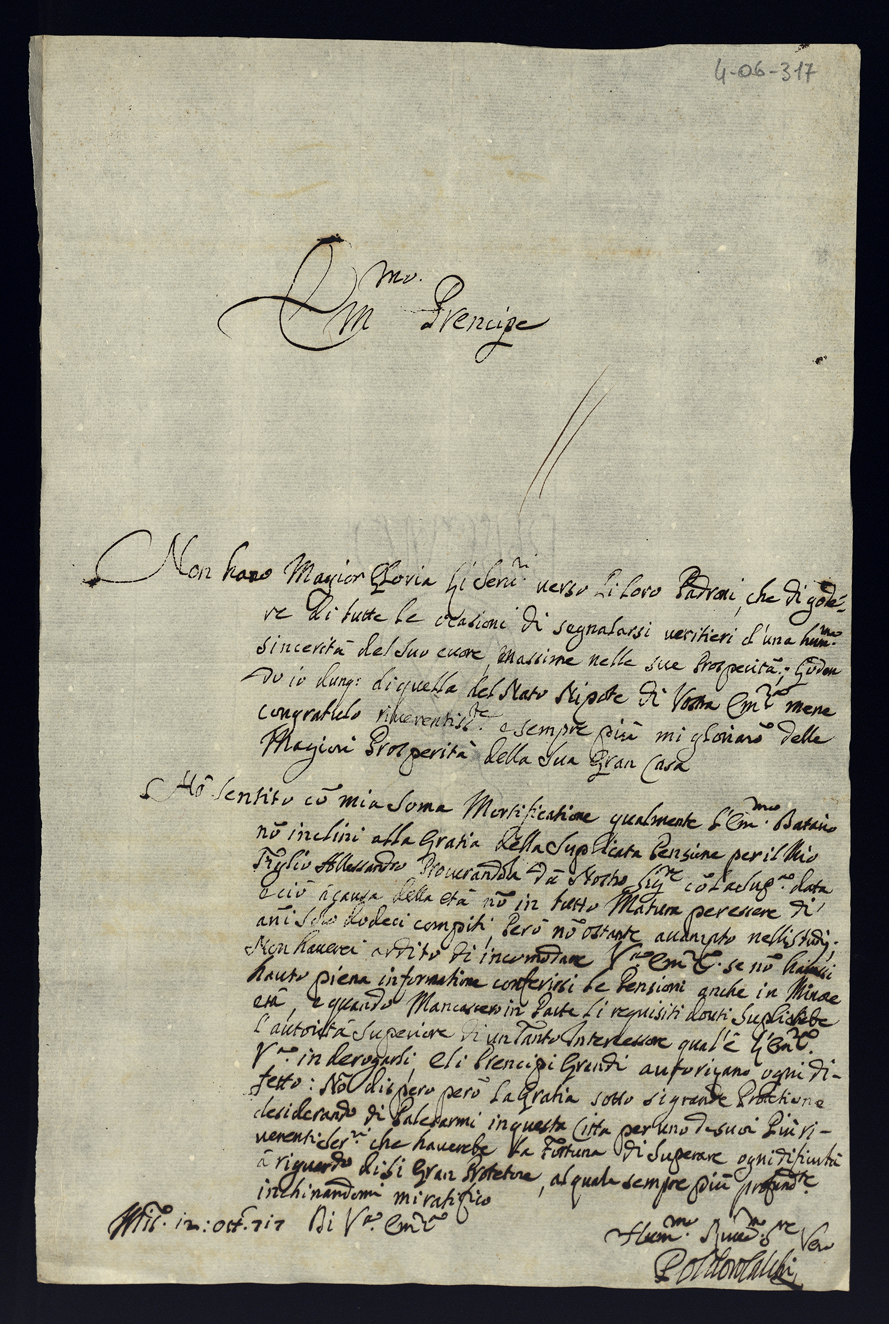 4-06-317
Em.mo Prencipe
Non hano Magior Gloria li Seru.ri verso li loro Padroni, che di gode-
re di tutte le ocasioni di segnalarsi veritieri d'una hum.ma
sincerità del suo cuore, Massime nelle sue Prosperità; Goden
do io dunq: di quella del Nato Nipote di Vostra Em.za mene
congratulo riuerentis.te e sempre più mi gloriarò delle
Magiori Prosperità della Sua Gran Casa
Hò Sentito cõ mia Soma Mortificatione qualmente l'Em.mo
nõ inclini alla Gratia della Suplicata Pensione per il Mio
Figlio Allessandro Prouerandola Dà Nostro Sig.re cõ la Sup.ca data
e ciò à causa della età nõ in tutto Matura per essere di
ani Solo dodeci compiti, Però nõ ostante auanzato nelli studij;
Non hauerei ardito di incomodare V.ra Em.za se nõ hauessi
hauto piena informatione conferirsi le Pensioni anche in Minore
età, e quando Mancassero in Parte li requisiti douti Suplirebe
l'autorità Superiore di un Tanto Intercessore qual'è l'Em.za
V.ra in derogarli, e li Prencipi Grandi autorizano ogni di-
fetto: Nõ dispero però La Gratia sotto si grande Protetione
desiderando di Palesarmi in questa Città per uno de suoi Più ri-
uerenti Ser.ri che hauerebe la Fortuna di Superare ogni dificultà
à riguardo di Si Gran Protetore, al quale sempre più profond.te
inchinandomi mi ratifico
Mil.o 12: Ott.e 717 Di V.ra Em.za
Hum.mo Seru.re Vero